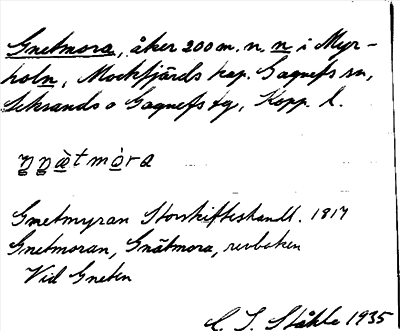 Gnetmora, åker 200 m. n. n i Myr-
holn, Mockfjärds kap. Gagnefs sn,
Leksands o Gagnefs tg, Kopp. l.
ŋŋàtmòra
Gnetmyran Storskifteshandl. 1817
Gnetmoran, Gnätmora, revboken
Vid Gneten
C. I. Ståhle 1935